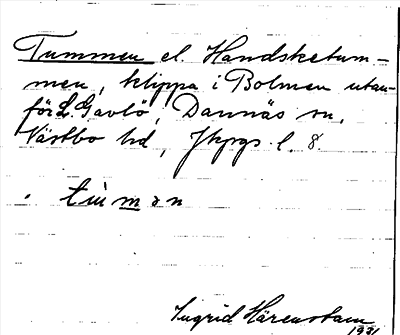 Tummen el. Handsketum-
men, klippa i Bolmen utan-
för L. Gavlö, Dannäs sn,
Västbo hd, Jkpgs. l. 8
tum̲ən
Ingrid Härenstam
1931